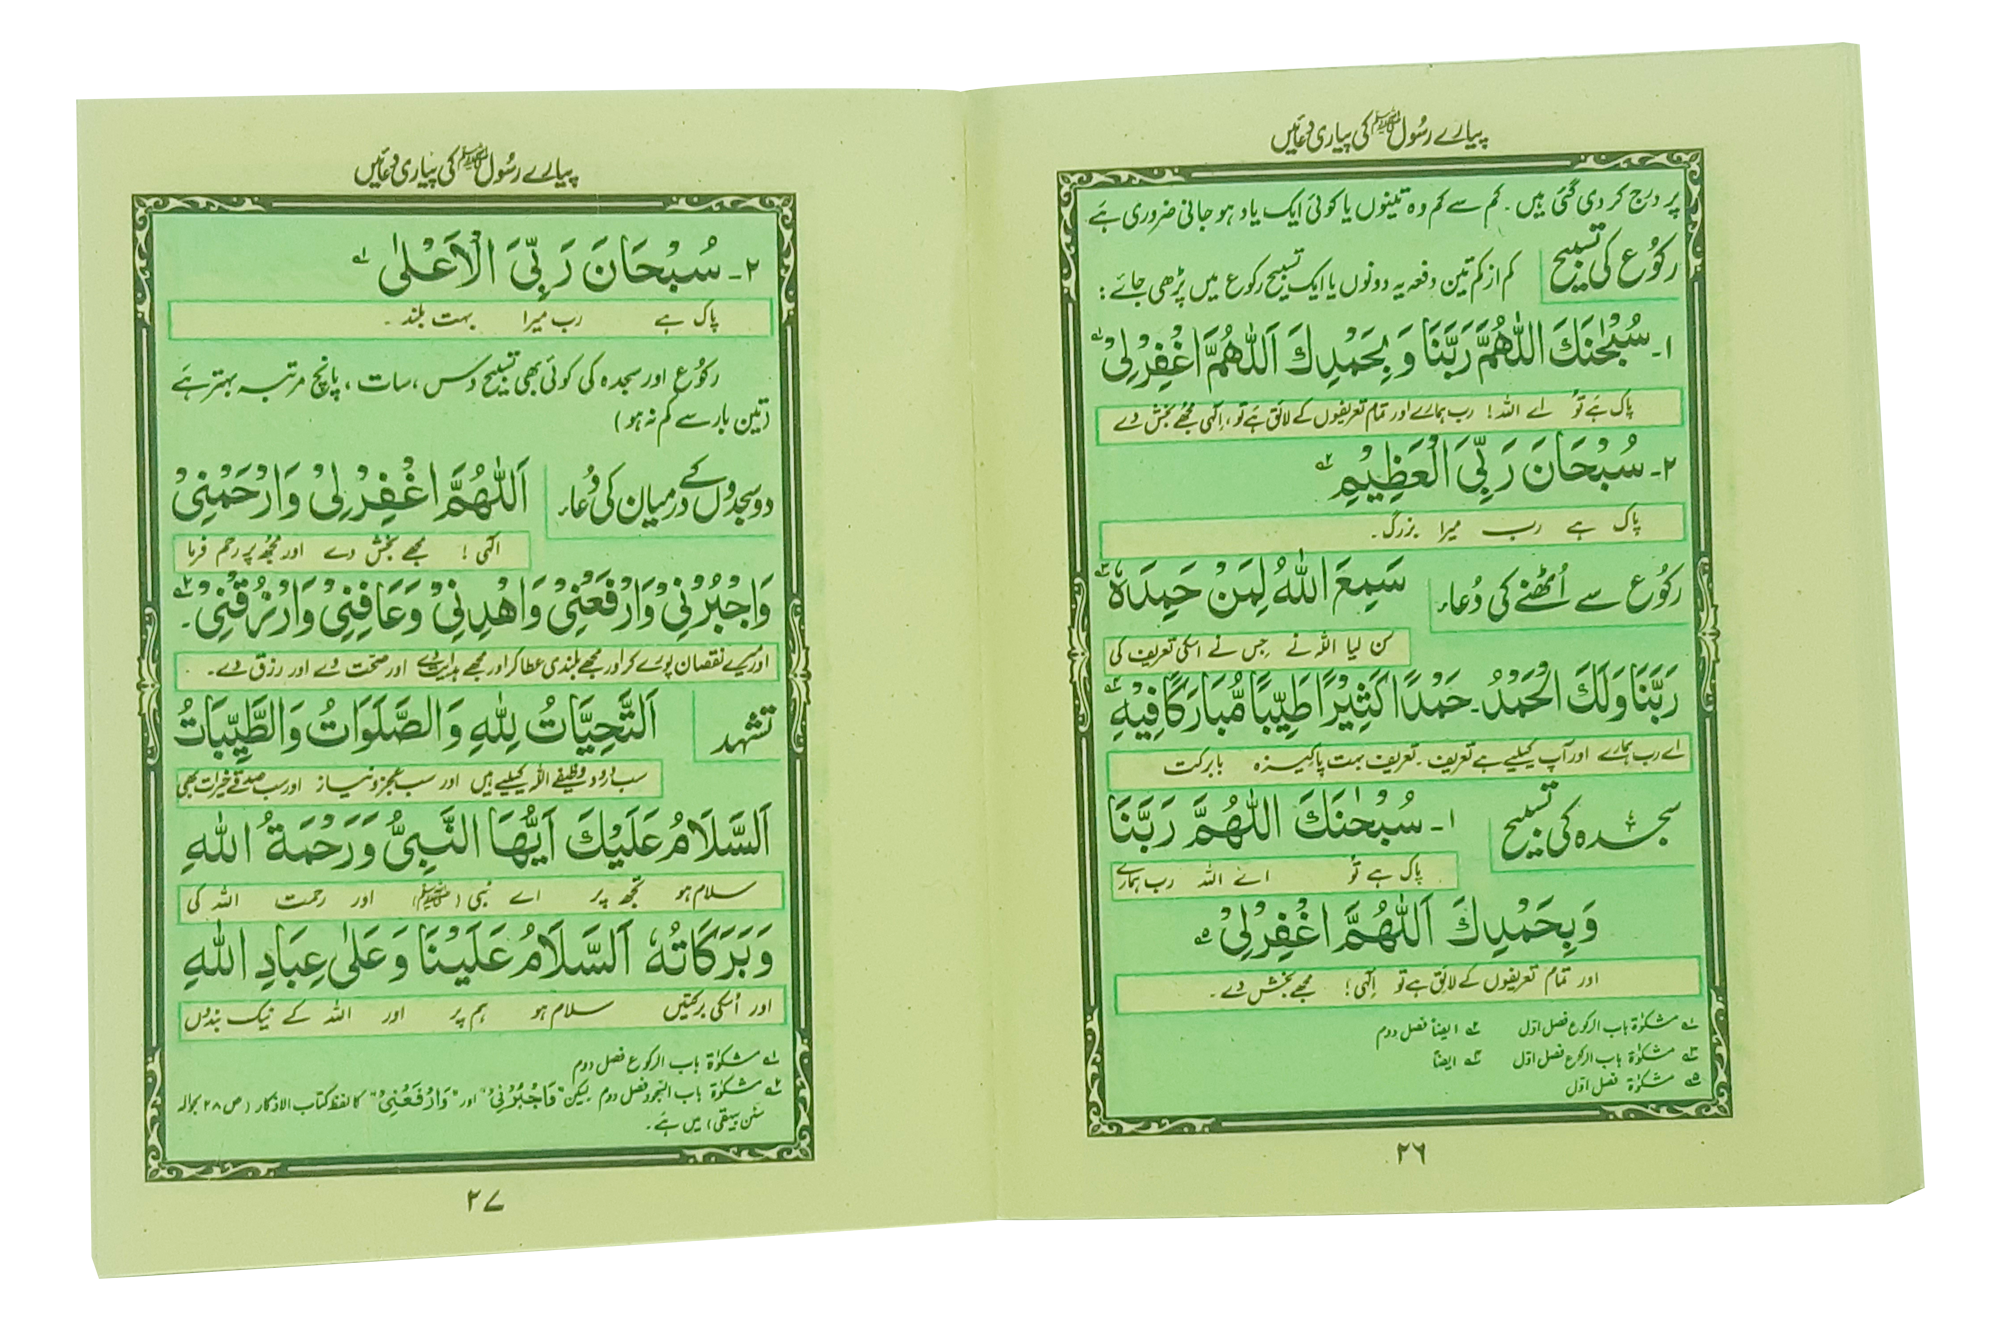 پیارے رسُول ﷺ کی پیاری دعائیں
پر درج کر دی گئی ہیں۔ کم سے کم وہ تینوں یا کوئی ایک یاد ہو جانی ضروری ہَے
رکُوع کی تسبیح
کم از کم تین دفعہ یہ دونوں یا ایک تسبیح رکوع میں پڑھی جائے :
۱۔ سُبْحٰنَكَ اللّٰهُمَّ رَبَّنَا وَ بِحَمْدِكَ اَللّٰهُمَّ اغْفِرْ لِیْ ؎۱
پاک ہَے تُو اے اللہ! رب ہمارے اور تمام تعریفوں کے لائق ہَے تو، اِلٰہی مجھے بخش دے
۲۔ سُبْحَانَ رَبِّیَ الْعَظِیْمِ ؎۲
پاک ہے رب میرا بزرگ۔
رکُوع سے اُٹھنے کی دُعاء
سَمِعَ اللّٰهُ لِمَنْ حَمِدَهٗ ؎۳
سُن لیا اللہ نے جس نے اسکی تعریف کی
رَبَّنَا وَلَكَ الْحَمْدُ۔ حَمْدًا كَثِیْرًا طَیِّبًا مُّبَارَكًا فِیْهِ ؎۴
اے رب ہمارے اور آپ کیلیے ہے تعریف۔ تعریف بہت پاکیزہ بابرکت
سجدہ کی تسبیح
۱۔ سُبْحٰنَكَ اللّٰهُمَّ رَبَّنَا
پاک ہے تُو اے اللہ رب ہمارے
وَبِحَمْدِكَ اَللّٰهُمَّ اغْفِرْ لِیْ ؎۵
اور تمام تعریفوں کے لائق ہے تو اِلٰہی! مجھے بخش دے۔
؎۱ مشکوٰۃ باب الرکوع فصل اوّل ؎۲ ایضاً فصل دوم
؎۳ مشکوٰۃ باب الرکوع فصل اوّل ؎۴ ایضاً
؎۵ مشکوٰۃ فصل اوّل
۲۶
پیارے رسُول ﷺ کی پیاری دعائیں
۲۔ سُبْحَانَ رَبِّیَ الْاَعْلٰی ؎۱
پاک ہے رب میرا بہت بلند۔
رکُوع اور سجدہ کی کوئی بھی تسبیح دس، سات، پانچ مرتبہ بہتر ہَے
(تین بار سے کم نہ ہو)
دو سجدوں کے درمیان کی دُعاء
اَللّٰهُمَّ اغْفِرْ لِیْ وَارْحَمْنِیْ
الٰہی! مجھے بخش دے اور مجھ پر رحم فرما
وَاجْبُرْنِیْ وَارْفَعْنِیْ وَاهْدِنِیْ وَعَافِنِیْ وَارْزُقْنِیْ۔ ؎۲
اور میرے نقصان پورے کر اور مجھے بلندی عطا کر اور مجھے ہدایت دے اور صحت دے اور رزق دے۔
تشہد
اَلتَّحِیَّاتُ لِلّٰهِ وَالصَّلَوَاتُ وَالطَّیِّبَاتُ
سب درود وظیفے اللہ کیلیے ہیں اور سب عجز و نیاز اور سب صدقے خیرات بھی
اَلسَّلَامُ عَلَیْكَ اَیُّهَا النَّبِیُّ وَرَحْمَةُ اللّٰهِ
سلام ہو تجھ پر اے نبی (ﷺ) اور رحمت اللہ کی
وَبَرَكَاتُهٗ اَلسَّلَامُ عَلَیْنَا وَعَلٰی عِبَادِ اللّٰهِ
اور اُسکی برکتیں سلام ہو ہم پر اور اللہ کے نیک بندوں
؎۱ مشکوٰۃ باب الرکوع فصل دوم
؎۲ مشکوٰۃ باب السجود فصل دوم لیکن "وَاجْبُرْنِیْ" اور "وَارْفَعْنِیْ" کا لفظ کتاب الاذکار (ص ۲۸ بحوالہ
سنن بیہقی) میں ہَے۔
۲۷